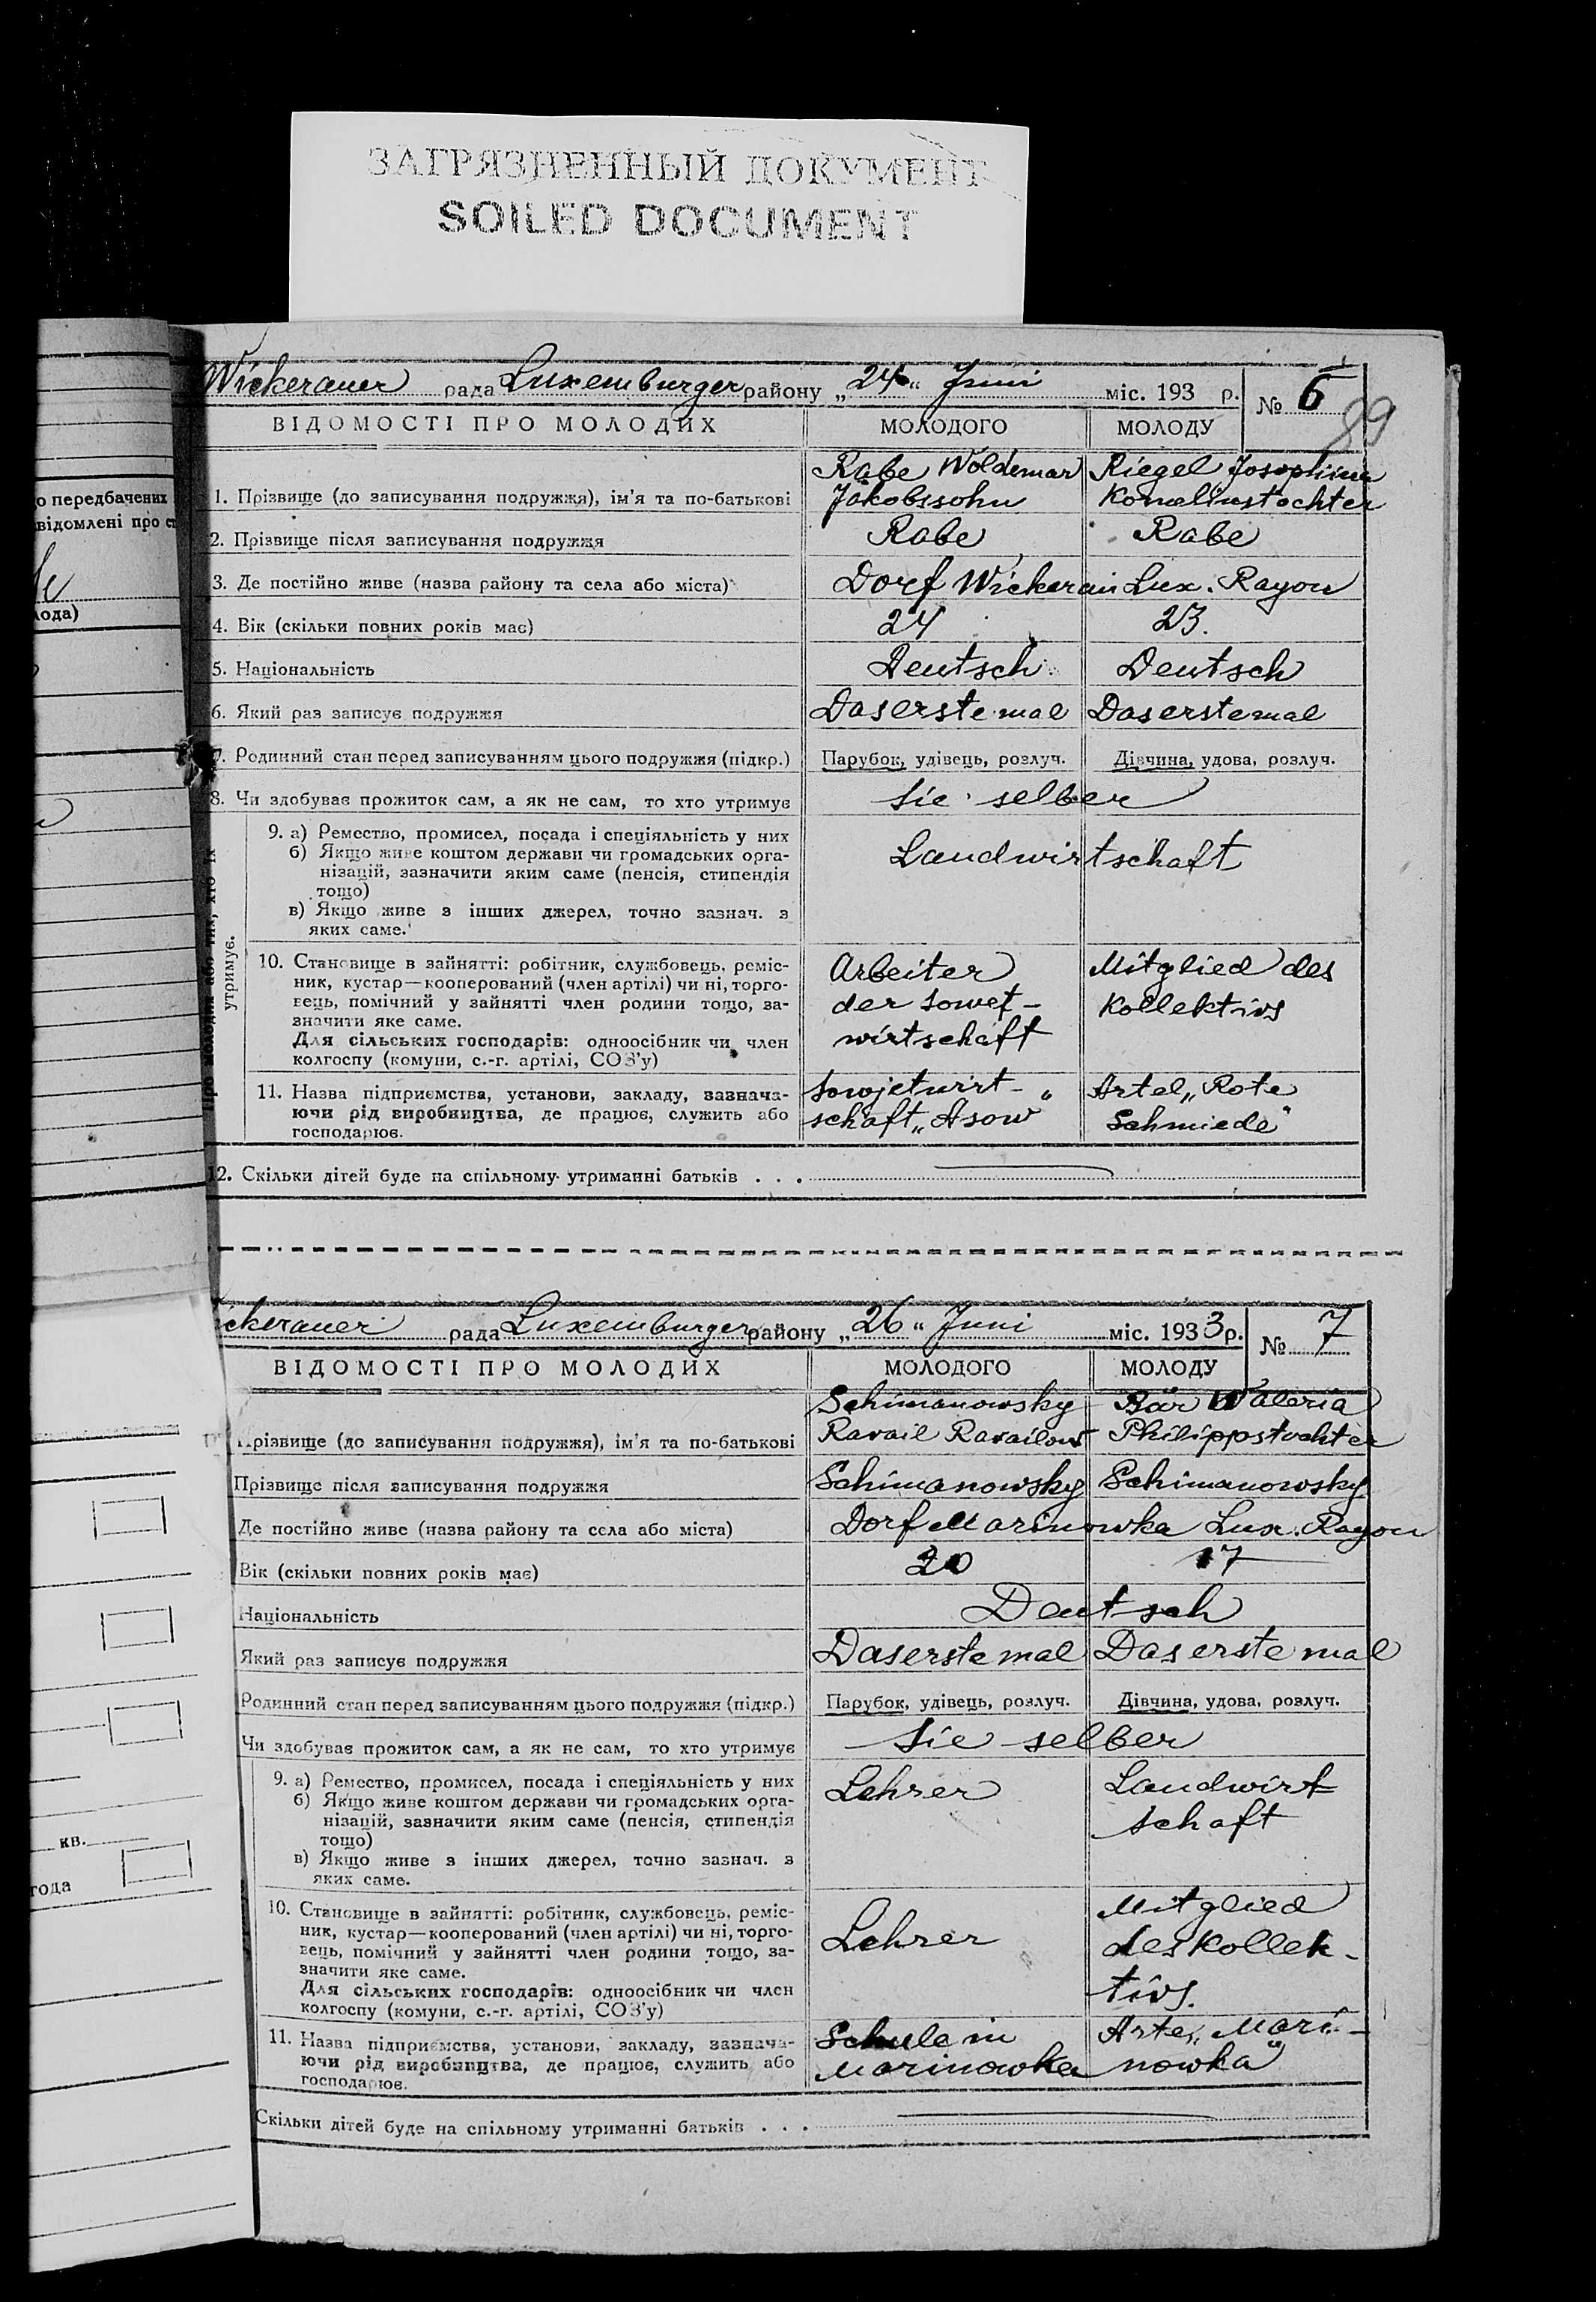 ЗАГРЯЗНЕННЫЙ ДОКУМЕНТ
SOILED DOCUMENT
передбачених
відомлені про
лода)
кв.
года
Wickerauer рада Luxemburger району „24“ Juni міс. 193 р. № 6
89
ВІДОМОСТІ ПРО МОЛОДИХ МОЛОДОГО МОЛОДУ
1. Прізвище (до записування подружжя), ім'я та по-батькові Rabe Woldemar Jakobssohn Riegel Josephine Korneliustochter
2. Прізвище після записування подружжя Rabe Rabe
3. Де постійно живе (назва району та села або міста) Dorf Wickerau Lux. Rayon
4. Вік (скільки повних років має) 24 23.
5. Національність Deutsch Deutsch
6. Який раз записує подружжя Das erste mal Das erste mal
7. Родинний стан перед записуванням цього подружжя (підкр.) Парубок, удівець, розлуч. Дівчина, удова, розлуч.
8. Чи здобуває прожиток сам, а як не сам, то хто утримує Sie selber
утримує.
9. а) Ремество, промисел, посада і спеціяльність у них
б) Якщо живе коштом держави чи громадських орга-
нізацій, зазначити яким саме (пенсія, стипендія
тощо)
в) Якщо живе з інших джерел, точно зазнач. з
яких саме.
Landwirtschaft
10. Становище в зайнятті: робітник, службовець, реміс-
ник, кустар—кооперований (член артілі) чи ні, торго-
вець, помічний у зайнятті член родини тощо, за-
значити яке саме.
Для сільських господарів: одноосібник чи член
колгоспу (комуни, с.-г. артілі, СОЗ'у)
Arbeiter
der Sowet-
wirtschaft
Mitglied des
Kollektivs
11. Назва підприємства, установи, закладу, зазнача-
ючи рід виробництва, де працює, служить або
господарює.
Sowjetwirt-
schaft „Asow“
Artel „Rote
Schmiede“
12. Скільки дітей буде на спільному утриманні батьків . . .
ickerauer рада Luxemburger району „26“ Juni міс. 1933 р. № 7
ВІДОМОСТІ ПРО МОЛОДИХ МОЛОДОГО МОЛОДУ
Прізвище (до записування подружжя), ім'я та по-батькові Schimanowsky Ravail Ravailow Bär Waleria Philippstochter
Прізвище після записування подружжя Schimanowsky Schimanowsky
Де постійно живе (назва району та села або міста) Dorf Marinowka Lux. Rayon
Вік (скільки повних років має) 20 17
Національність Deutsch
Який раз записує подружжя Das erste mal Das erste mal
Родинний стан перед записуванням цього подружжя (підкр.) Парубок, удівець, розлуч. Дівчина, удова, розлуч.
Чи здобуває прожиток сам, а як не сам, то хто утримує Sie selber
9. а) Ремество, промисел, посада і спеціяльність у них
б) Якщо живе коштом держави чи громадських орга-
нізацій, зазначити яким саме (пенсія, стипендія
тощо)
в) Якщо живе з інших джерел, точно зазнач. з
яких саме.
Lehrer
Landwirt-
schaft
10. Становище в зайнятті: робітник, службовець, реміс-
ник, кустар—кооперований (член артілі) чи ні, торго-
вець, помічний у зайнятті член родини тощо, за-
значити яке саме.
Для сільських господарів: одноосібник чи член
колгоспу (комуни, с.-г. артілі, СОЗ'у)
Lehrer
Mitglied
des Kollek-
tivs.
11. Назва підприємства, установи, закладу, зазнача-
ючи рід виробництва, де працює, служить або
господарює.
Schule in
Marinowka
Artel „Mari-
nowka“
Скільки дітей буде на спільному утриманні батьків . . .